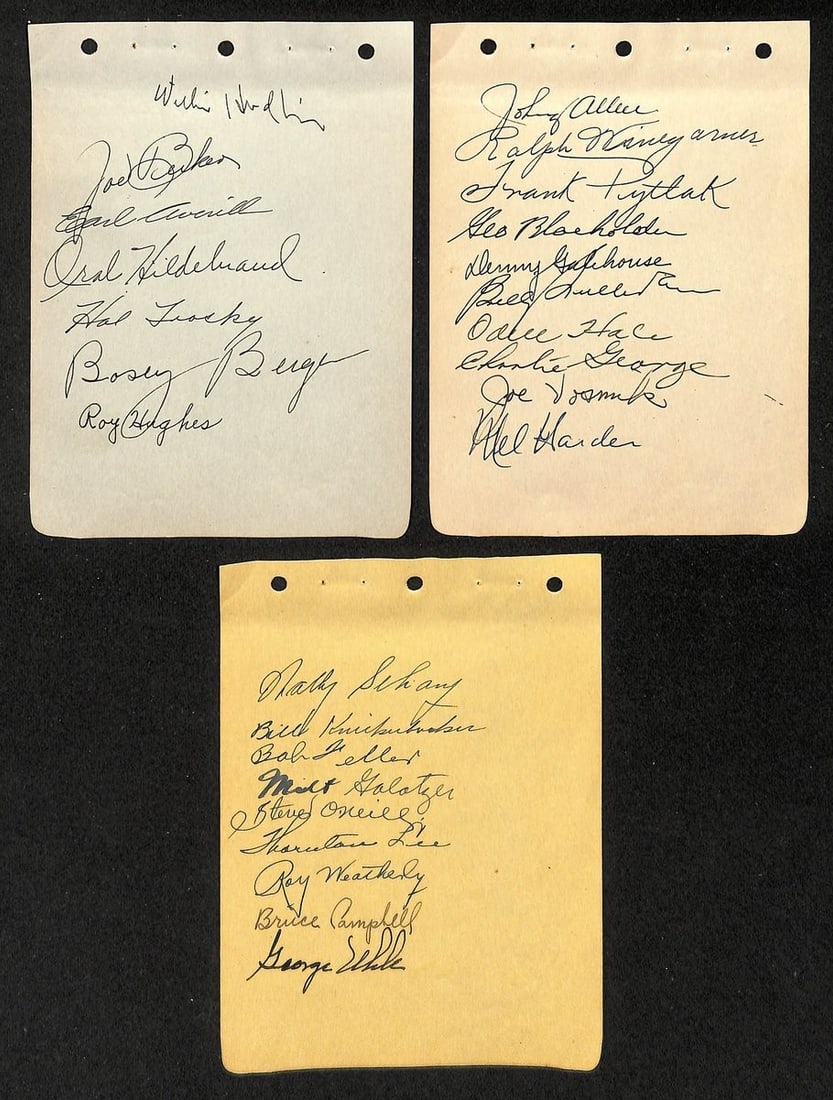 Willis Hudlin
Joe Becker
Earl Averill
Oral Hildebrand
Hal Trosky
Bosey Berger
Roy Hughes
Johnny Allen
Ralph Winegarner
Frank Pytlak
Geo Blaeholder
Denny Galehouse
Billy Sullivan
Odell Hale
Charlie George
Joe Vosmik
Mel Harder
Wally Schang
Bill Knickerbocker
Bob Feller
Milt Galatzer
Steve O'Neill
Thornton Lee
Roy Weatherly
Bruce Campbell
George Uhle